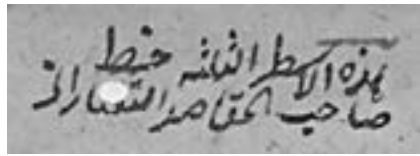 هذه الاسطر الثلثه خط
صاحب المقاصد التفتازاني